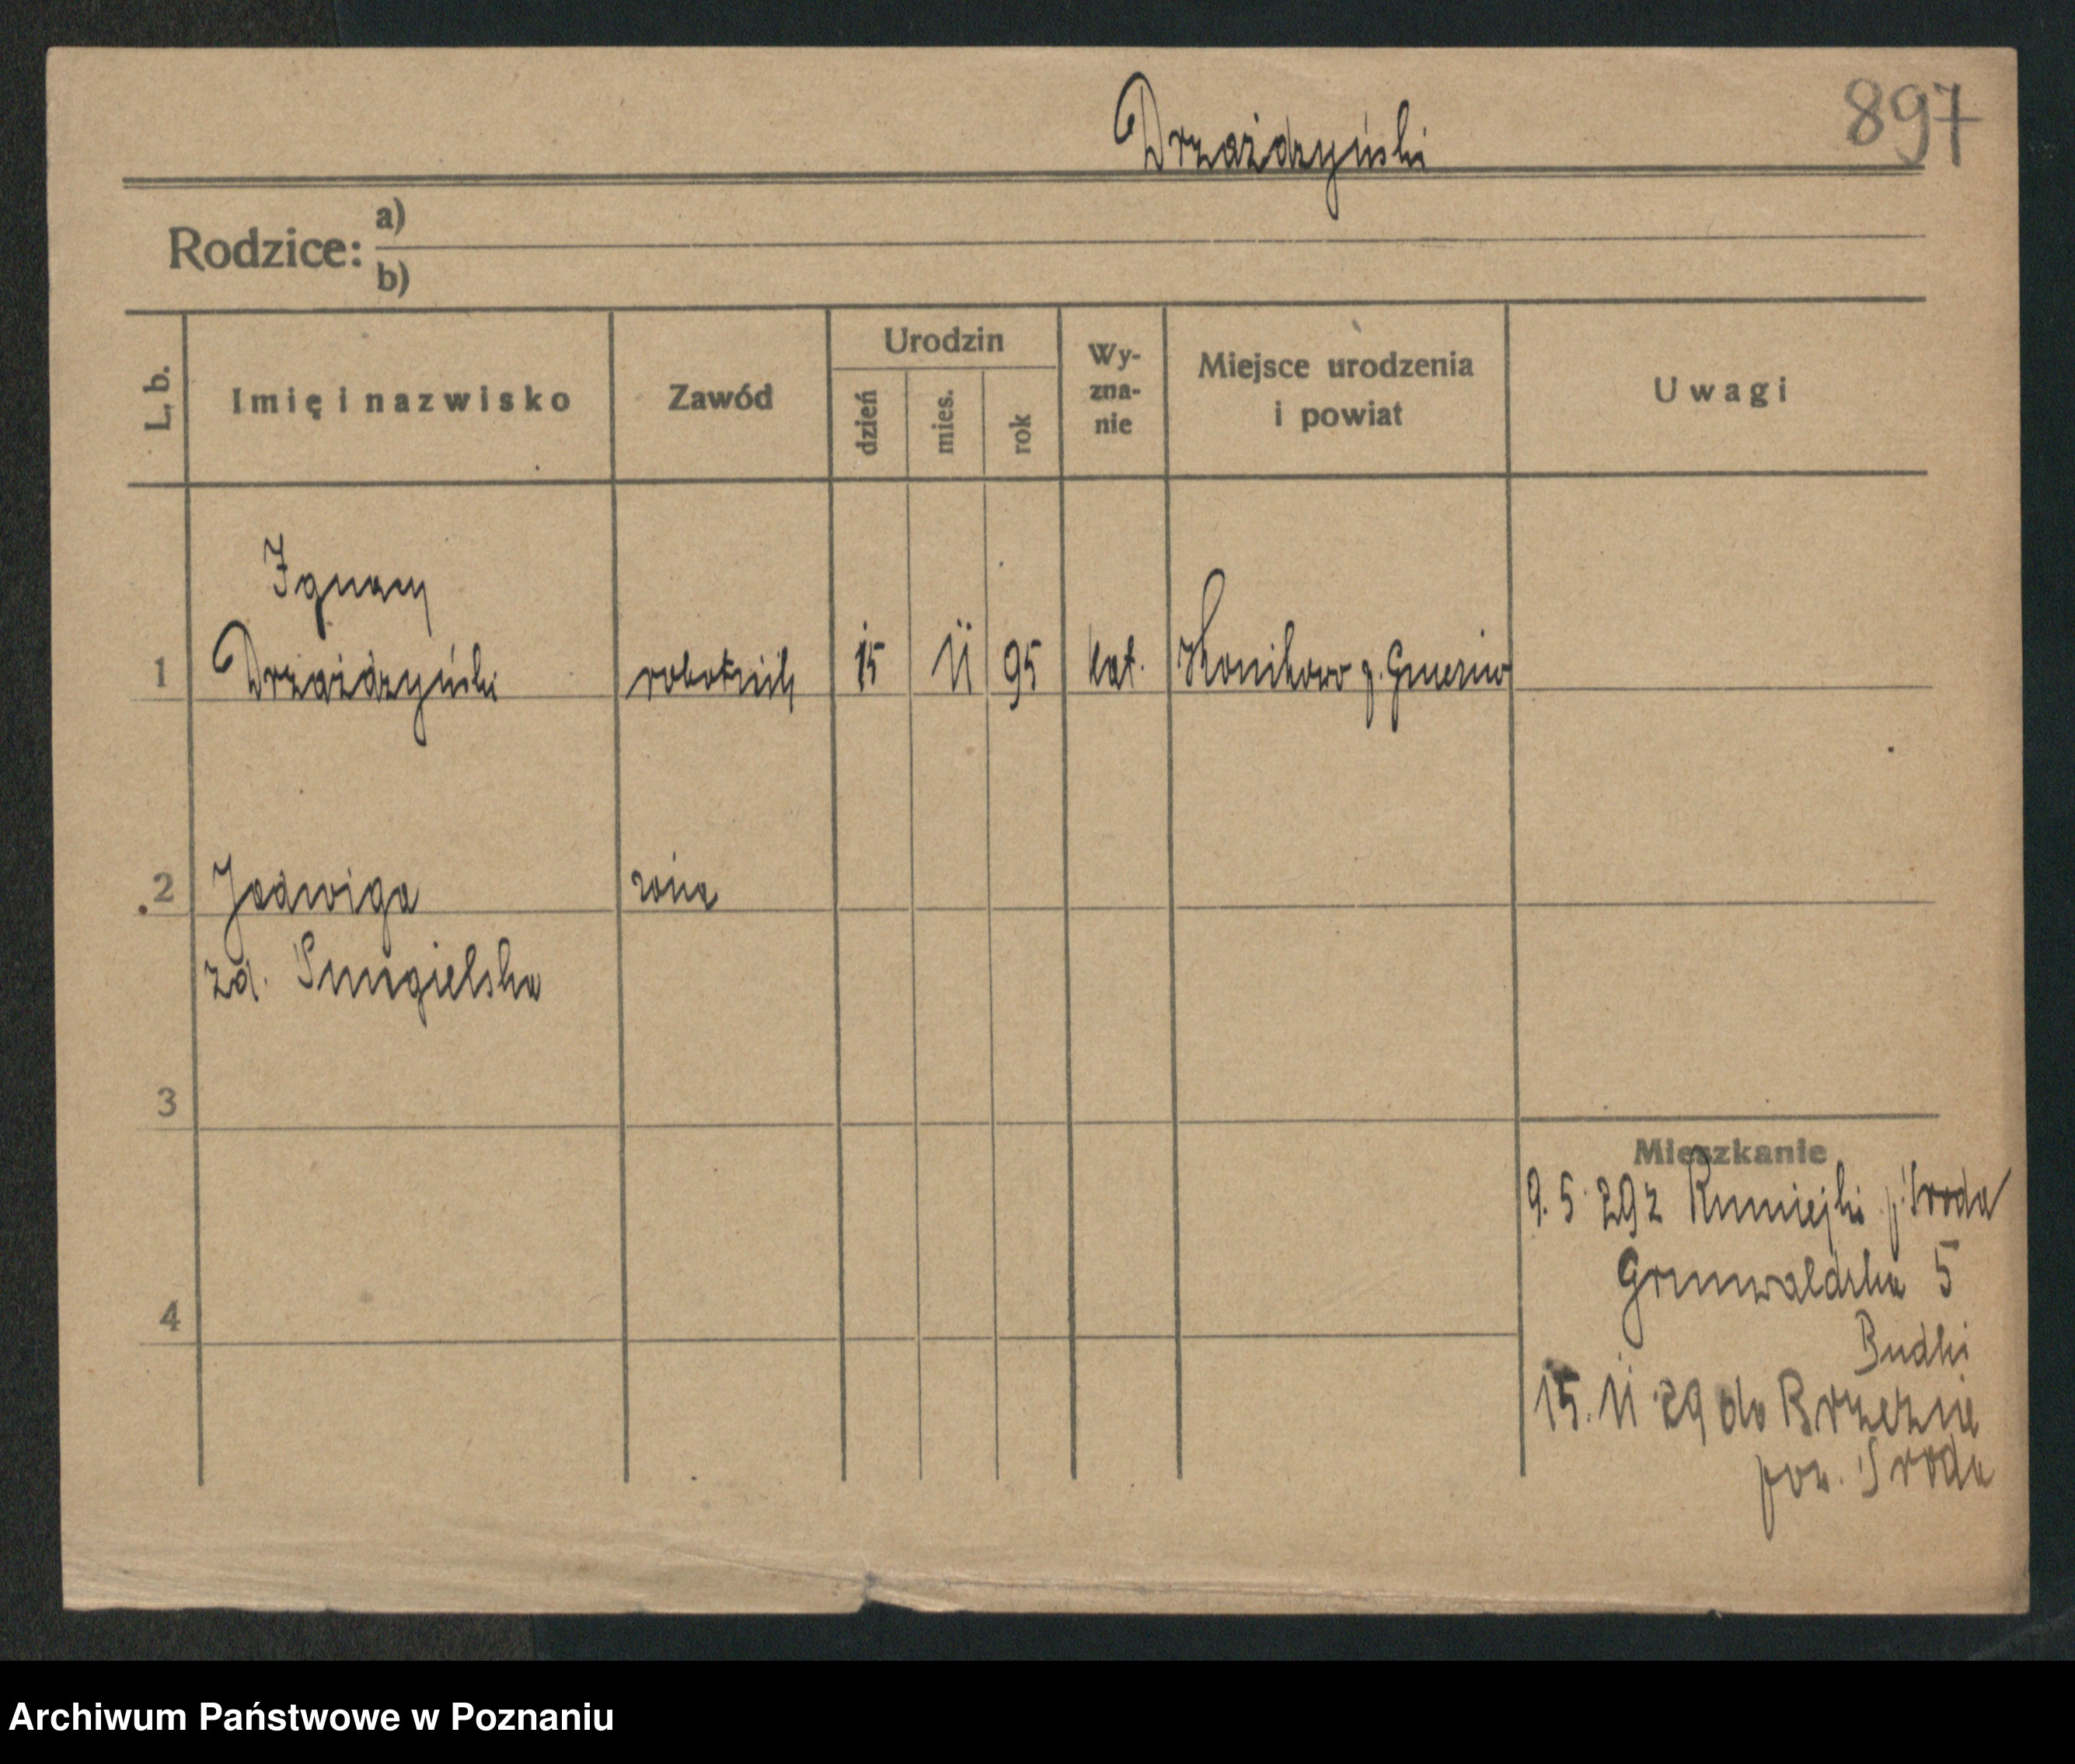 897
Drzażdzyński
Rodzice: a)
b)
L. b.
Imię i nazwisko
Zawód
Urodzin
dzień
mies.
rok
Wy-
zna-
nie
Miejsce urodzenia
i powiat
Uwagi
Ignacy
1 Drzażdzyński robotnik 15 11 95 kat. p. Gniezno
2 Jadwiga żona
zd. Smigielska
3
Mieszkanie
9. 5. 29 z Rumiejki p. Sroda
Grunwaldzka 5
4
Budki
15. 11 29 do Brzezie
pow. Sroda
Archiwum Państwowe w Poznaniu